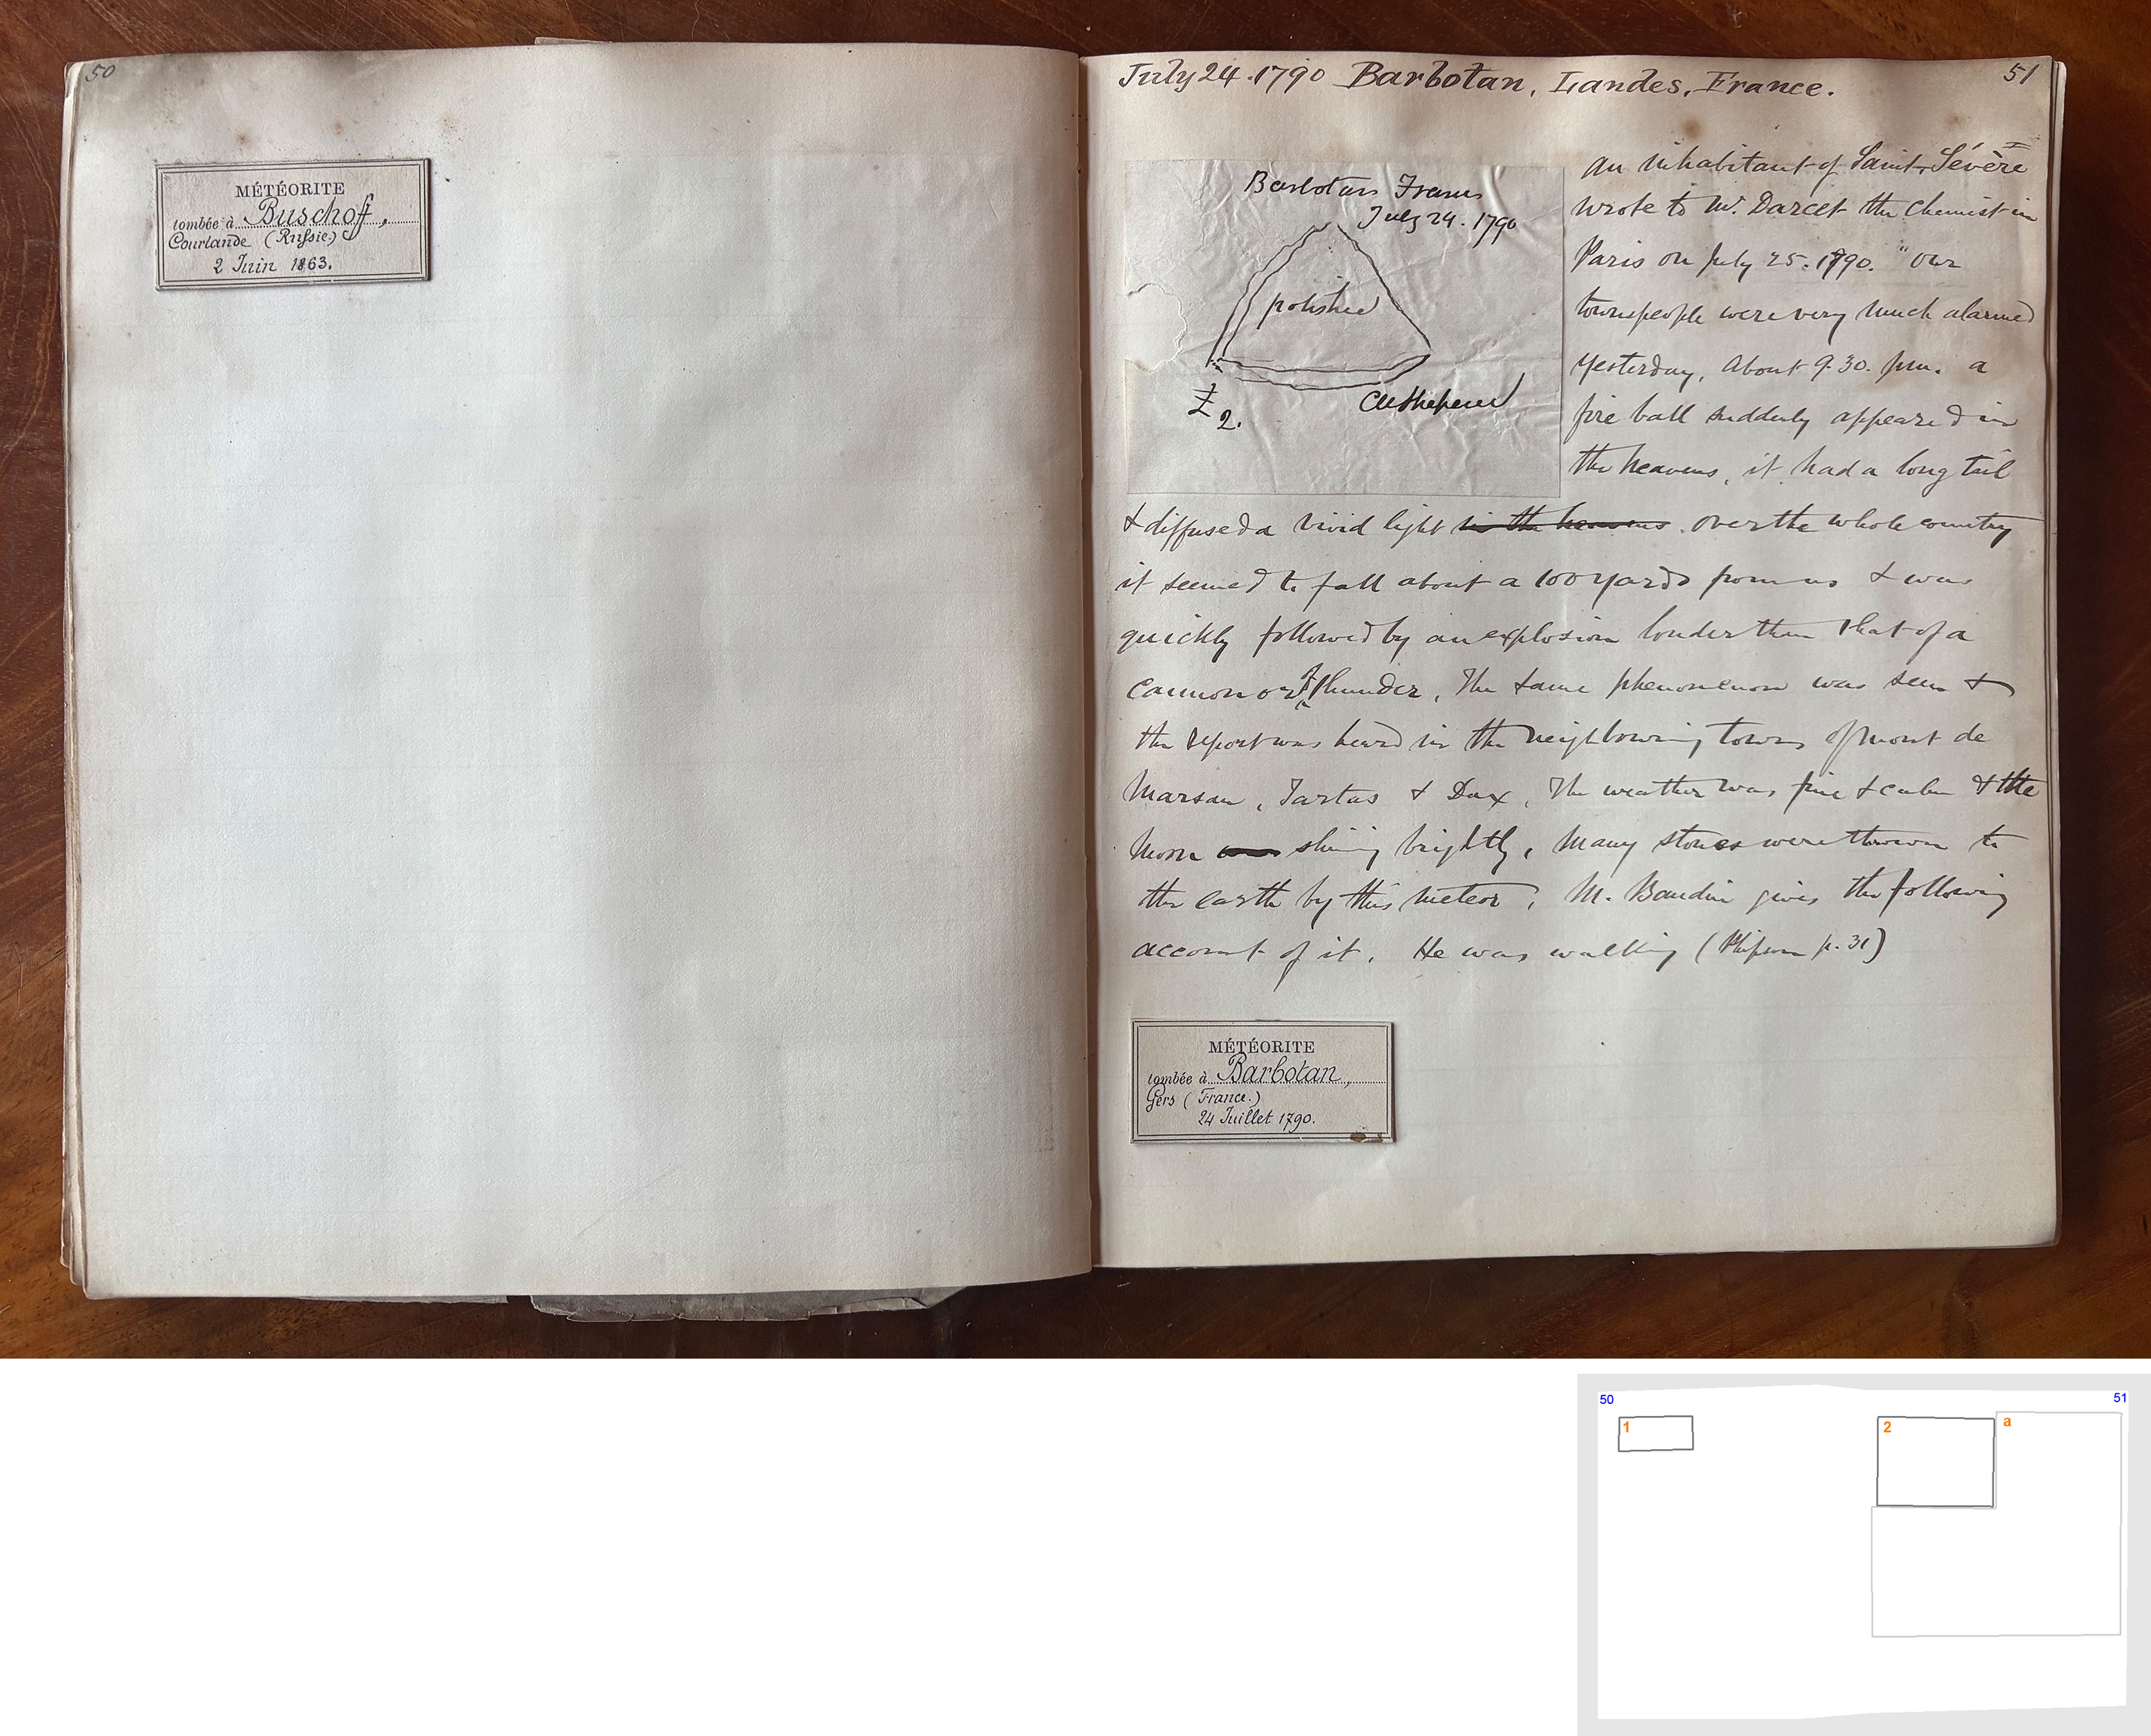 50
MÉTÉORITE
tombée à Buschof,
Courlande (Russie.)
2 Juin 1863.
July 24. 1790 Barbotan, Landes, France.
51
Barbotan France
July 24. 1790
polished
2.
An inhabitant of Saint-Sévère
wrote to Mr. Darcet the chemist in
Paris on July 25. 1790. "Our
townspeople were very much alarmed
yesterday, about 9.30. pm. a
fire ball suddenly appeared in
the heavens, it had a long tail
& diffused a vivid light in the heavens. over the whole country
it seemed to fall about a 100 yards from us & was
quickly followed by an explosion louder than that of a
cannon or of thunder, The same phenomenon was seen &
the report was heard in the neighbouring towns of Mont de
Marsan, Tartas & Dax, The weather was fine & calm & the
moon was shining brightly, Many stones were thrown to
the earth by this meteor, M. Baudin gives the following
account of it. He was walking (Phipson p. 31)
MÉTÉORITE
tombée à Barbotan,
Gers (France.)
24 Juillet 1790.
50
51
1
2
a